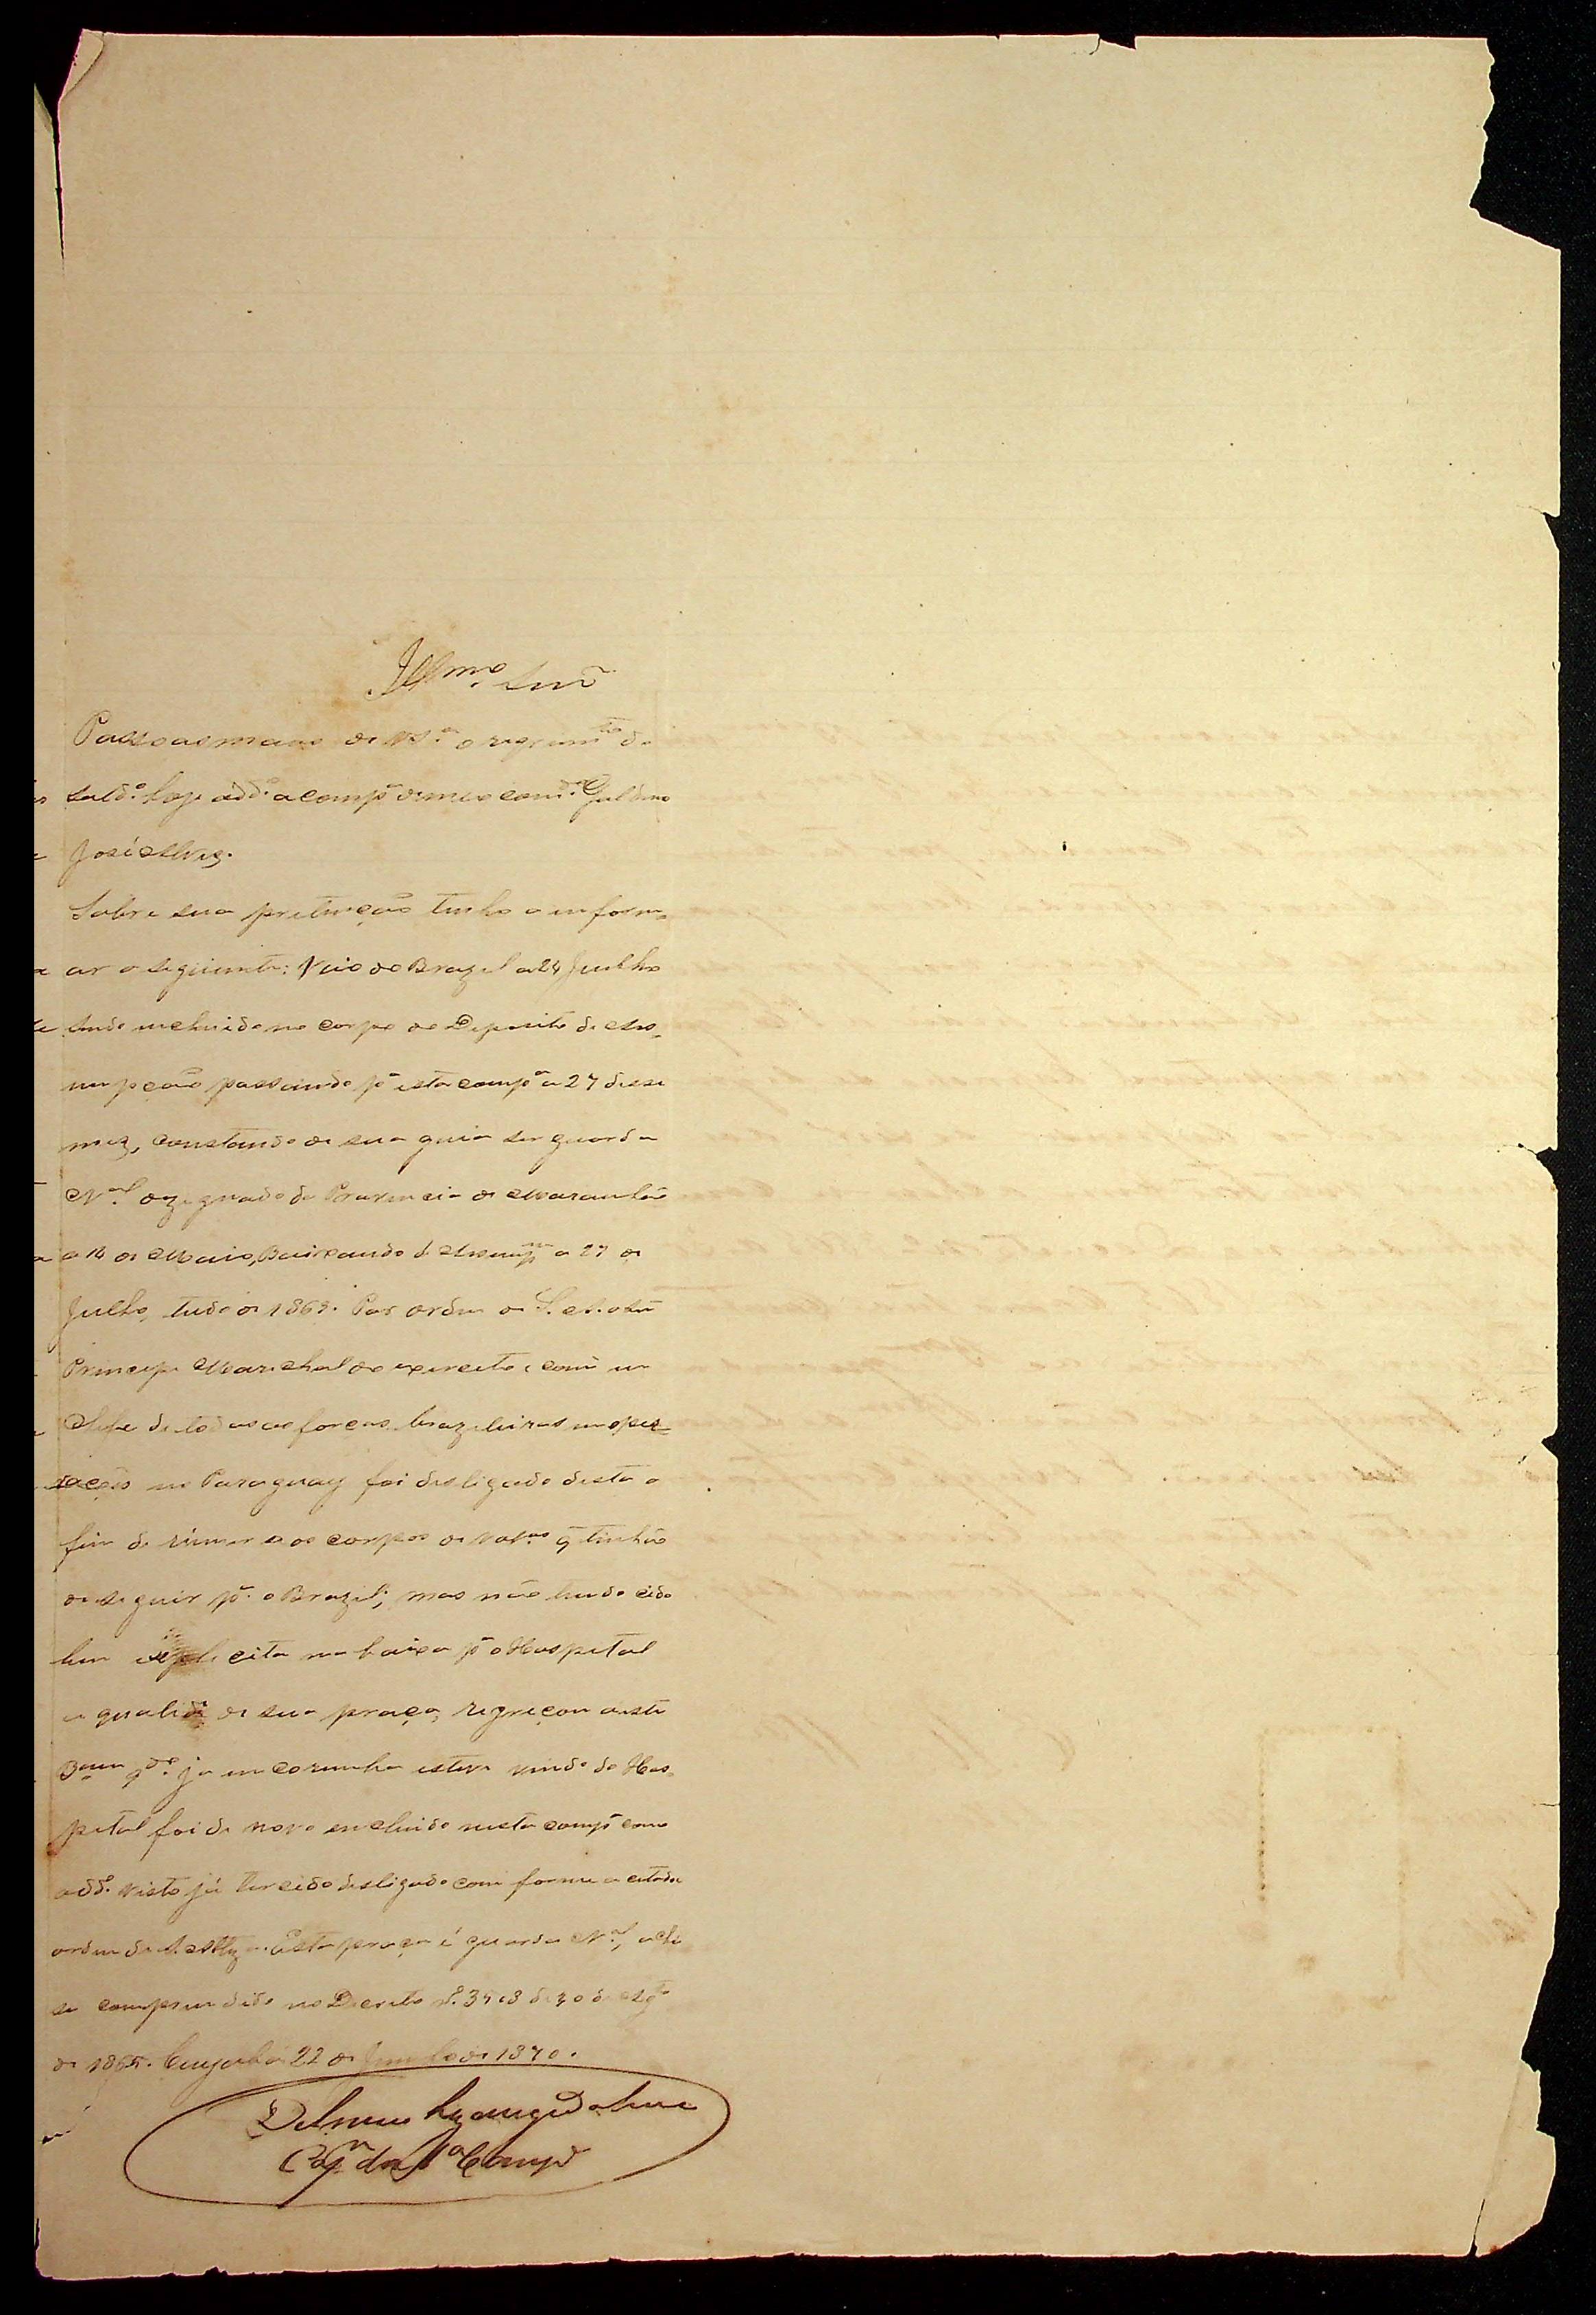 Illmo. Snr
Passo as maos de VSa. o requerimto do
sold.o hoje add.o a compa de meo comdo. Galdino
José Alves.
Sobre sua pretenção tenho a inform-
ar o seguinte: Veio do Brazil a 24 Junho
sendo incluido no corpo de Deposito de Ass-
umpção passando pa esta compa a 27 desse
mez, constando de sua guia ser guarda
Nal. dezignado da Provincia do Maranhão
a 14 de Maio, Baixando a 27 de
Julho, tudo de 1869. Por ordem de S. A. o Snr
Principe Marechal do exercito e comde em
Chefe de todas as forças brazileiras em oper-
ações no Paraguay foi desligado desta a
fim de reunir aos corpos de Vols. q tinhão
de seguir pa o Brazil, mas não tendo cido
bem explicita na baixa pa o Hospital
a qualide de sua praça, regreçou a este
Bam qdo. já em esteve vindo do Hos-
pital foi de novo incluido nesta compa como
add.o visto já ter cido desligado comforme a citada
ordem de S. Alteza. Esta praça é guarda Nal, acha
se comprendido no Decreto N. 3508 de 30 de Agto
de 1865. 22 de Junho de 1870.
Capm da 1a Compa